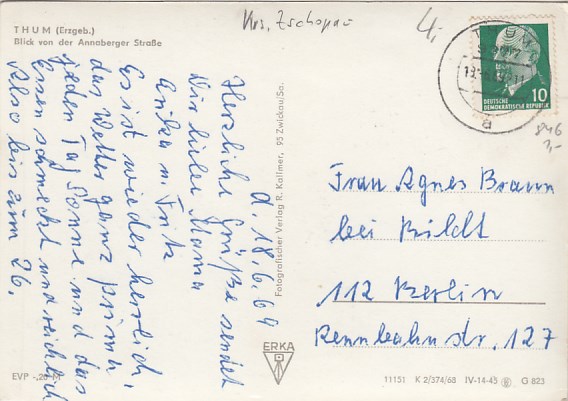 Krs. Zschopau
4,-
THUM (Erzgeb.)
Blick von der Annaberger Straße
d. 18.6.69
Herzliche Grüße sendet
Dir liebe Mama
Anika u. Fritz
Es ist wieder herrlich,
das Wetter ganz prima,
jeden Tag Sonne und das
Essen schmeckt und reichlich
Also bis zum 26.
Fotografischer Verlag R. Kallmer, 95 Zwickau/Sa.
ERKA
THUM
DEUTSCHE
DEMOKRATISCHE REPUBLIK
10
a
846
Frau Agnes Braun
bei Bildt
112 Berlin
Rennbahnstr. 127
EVP -,20 M
11151 K 2/374/68 IV-14-45 G 823